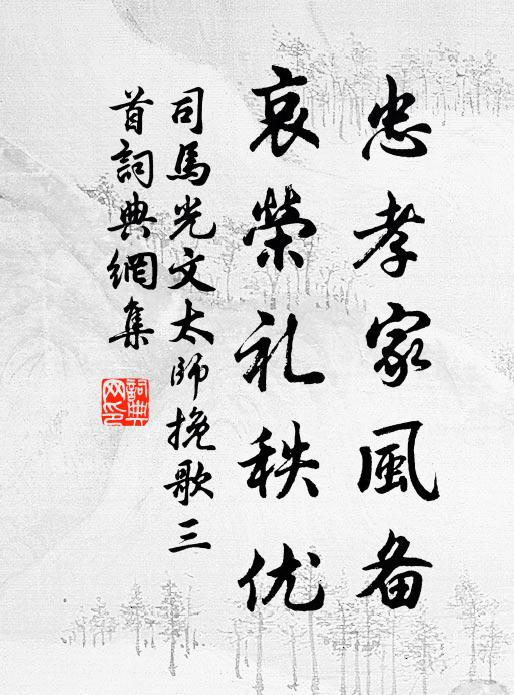 忠孝家風备
哀榮礼秩优
司馬光文太师挽歌三
首詞典網集
詞典网印